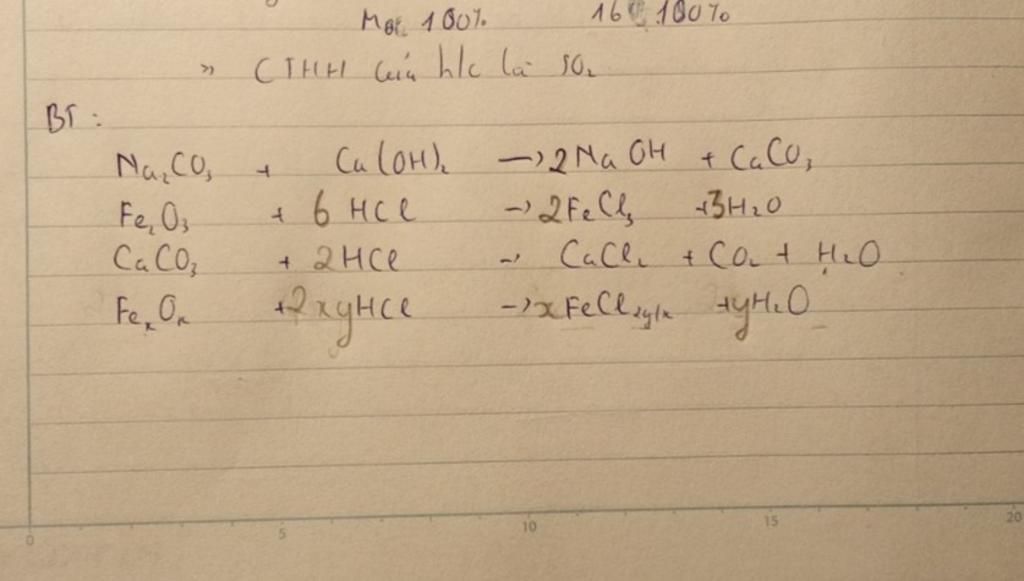 M 100% 16 . 100%
» CTHH của h/c là SO₂
BT :
Na₂CO₃ + Ca(OH)₂ → 2NaOH + CaCO₃
Fe₂O₃ + 6 HCl → 2FeCl₃ + 3H₂O
CaCO₃ + 2HCl → CaCl₂ + CO₂ + H₂O
FeₓOₓ + 2xyHCl → xFeCl₂y/x + yH₂O
0 5 10 15 20